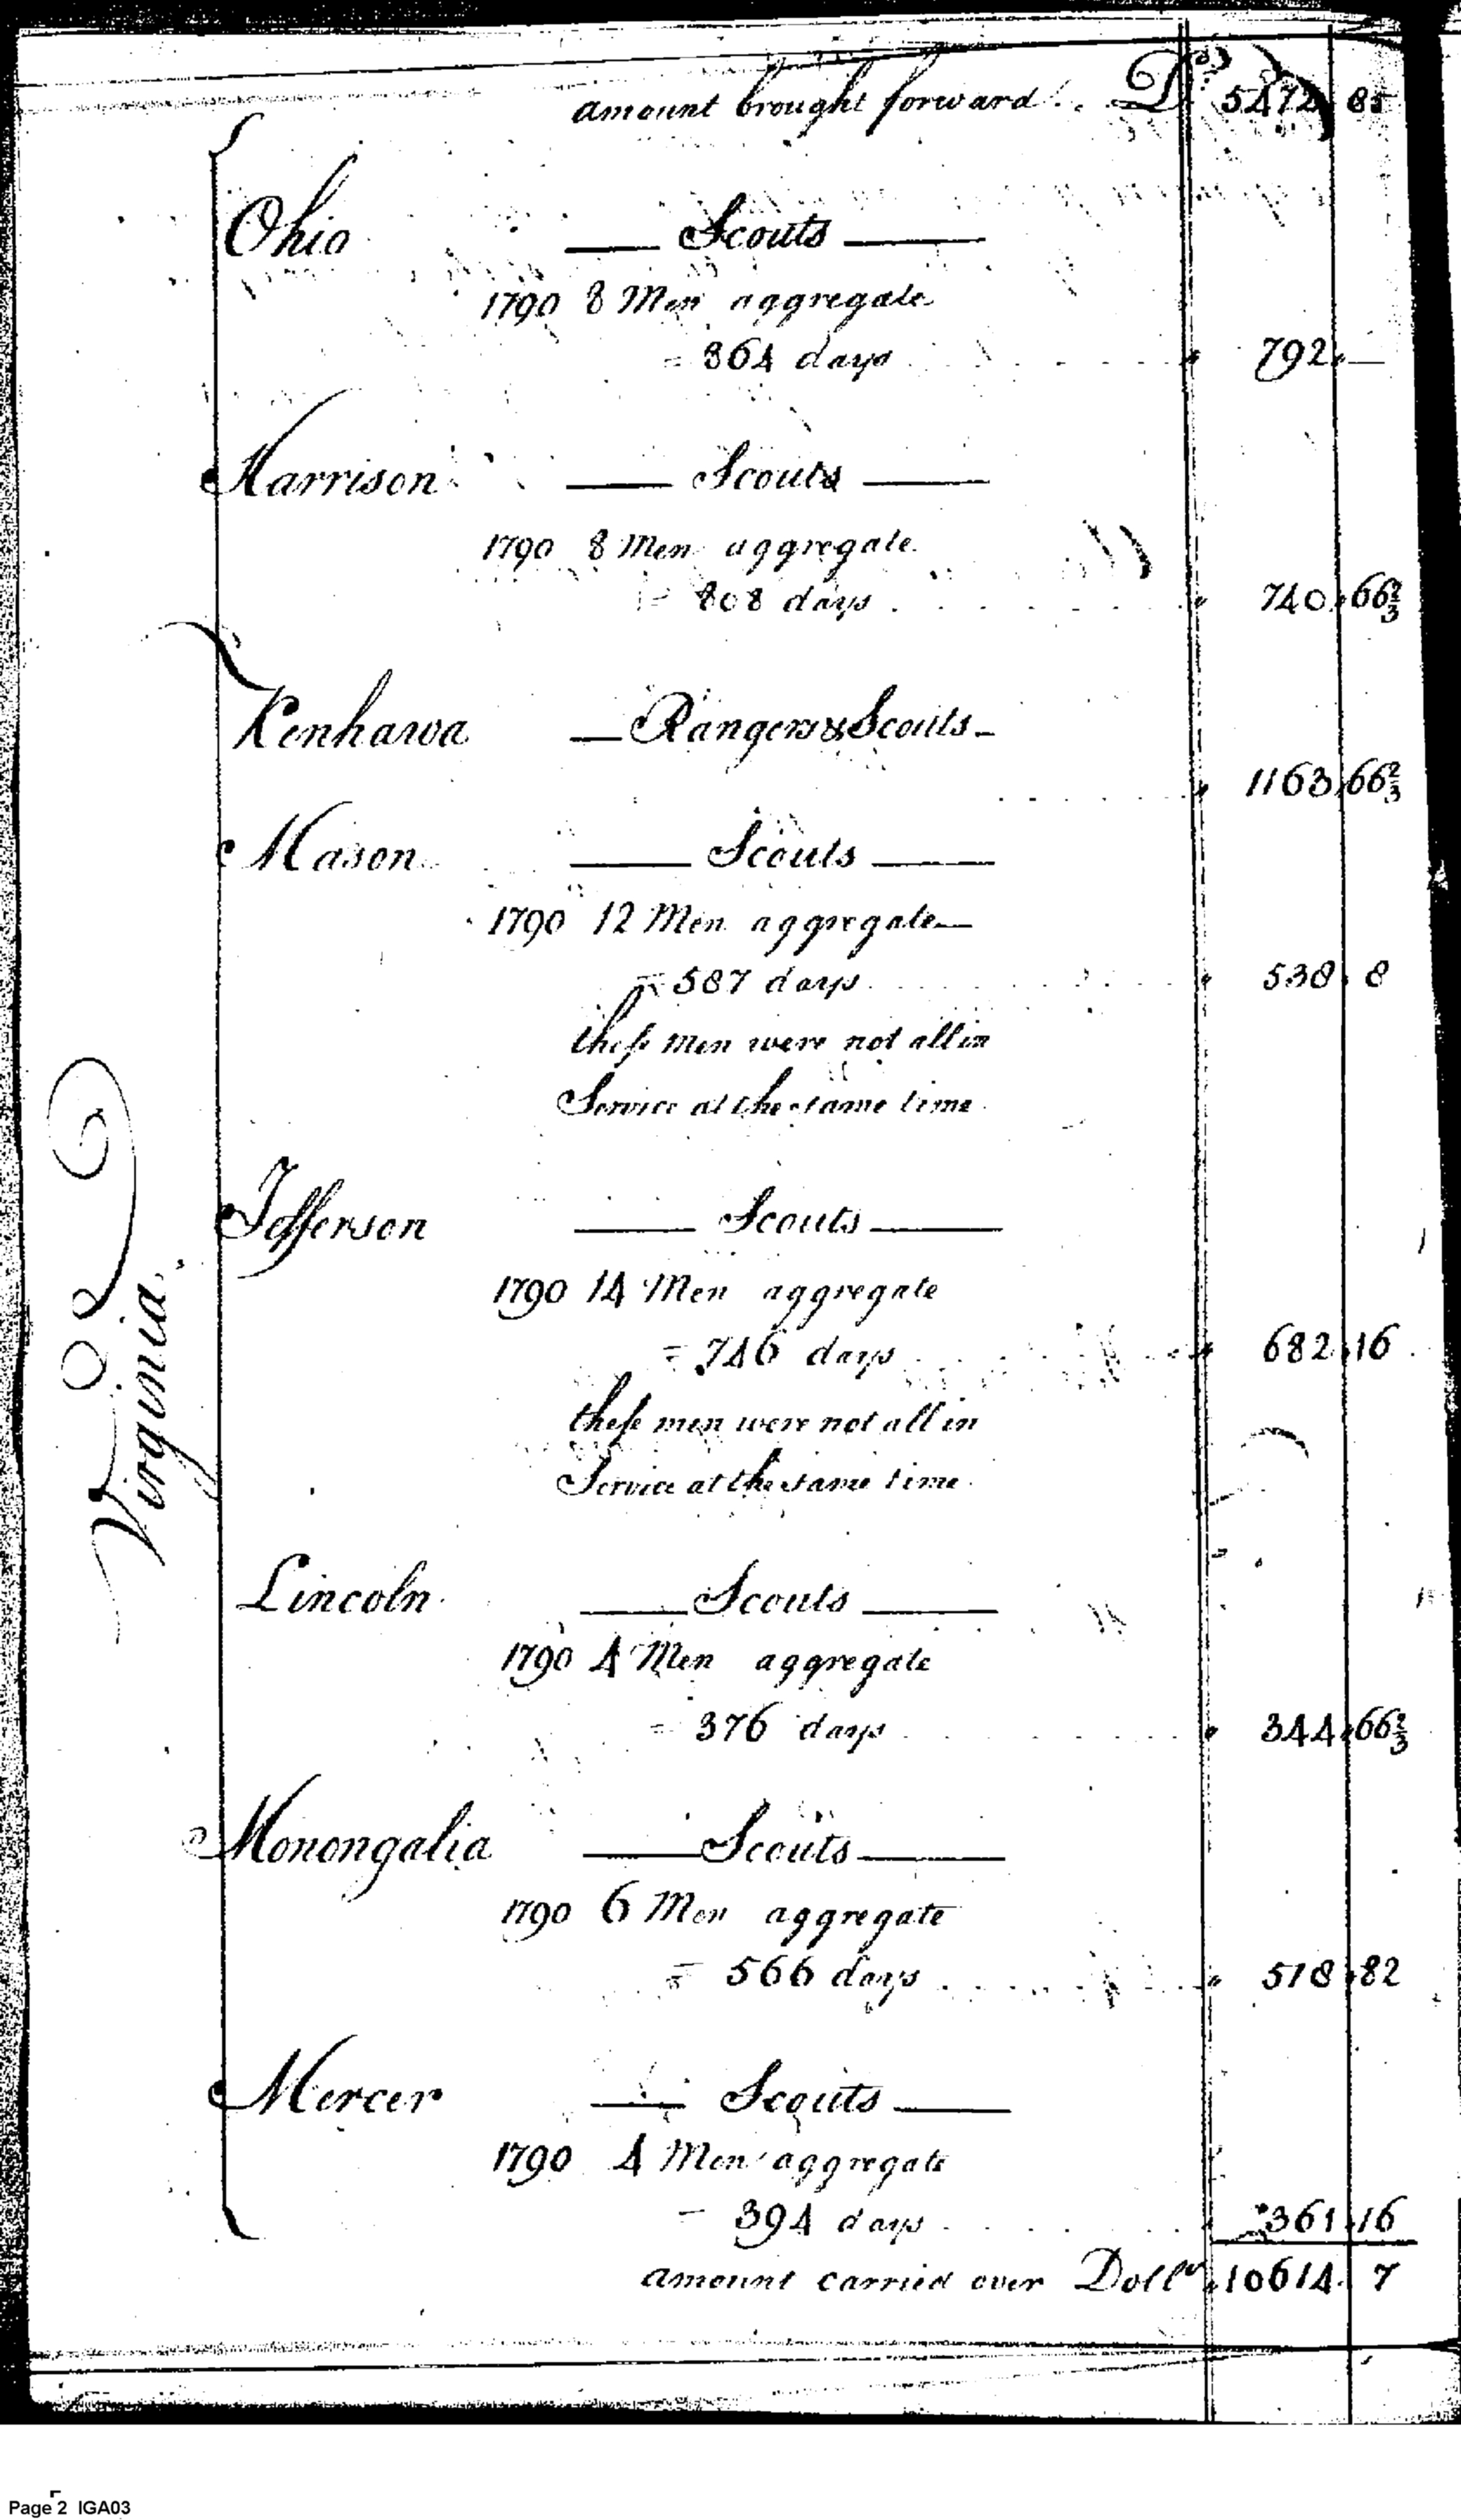 amount brought forward . . Drs. 5472 85
Ohio — Scouts —
1790 8 Men aggregate
= 864 days . . . . 792. —
Harrison — Scouts —
1790 8 Men aggregate
= 808 days . . . . 740. 66 2/3
Kenhawa — Rangers & Scouts —
. . . . 1163. 66 2/3
Mason — Scouts —
1790 12 Men aggregate —
= 587 days . . . . 538. 8
these men were not all in
Service at the same time
Jefferson — Scouts —
1790 14 Men aggregate
= 746 days . . . . 682. 16
these men were not all in
Service at the same time
Virginia
Lincoln — Scouts —
1790 4 Men aggregate
= 376 days . . . . 344. 66 2/3
Monongalia — Scouts —
1790 6 Men aggregate
= 566 days . . . . 518. 82
Mercer — Scouts —
1790 4 Men aggregate
= 394 days . . . . 361. 16
amount carried over Dollrs. 10614. 7
Page 2 IGA03